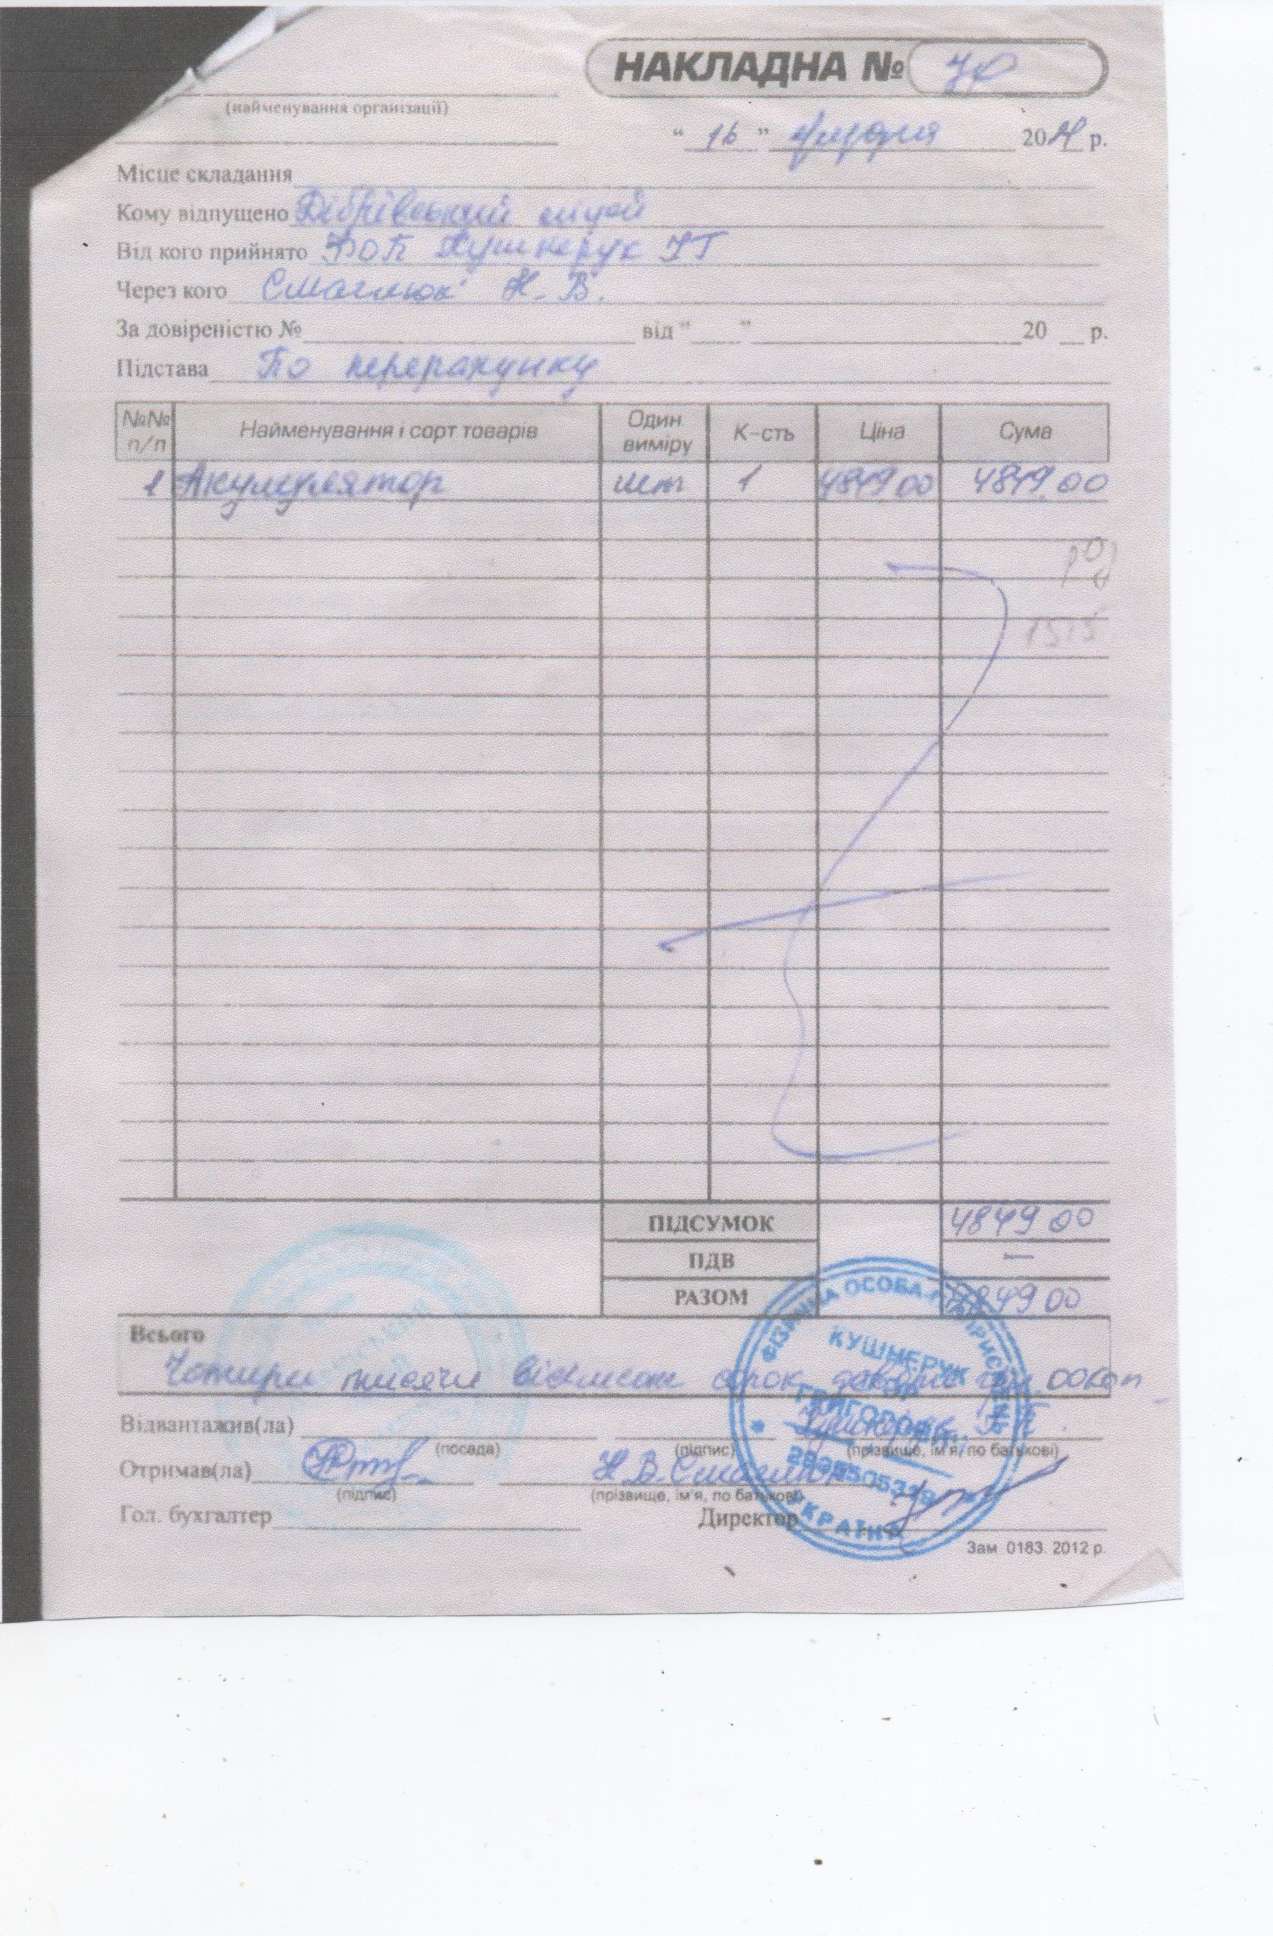 НАКЛАДНА №
(найменування організації)
“ 16 ” 20 р.
Місце складання
Кому відпущено Дібрівський ліцей
Від кого прийнято ФОП Кушнерук ІГ
Через кого Смаглюк Н. В.
За довіреністю № від “ ” 20 р.
Підстава По перерахунку
№№ п/п Найменування і сорт товарів Один виміру К-сть Ціна Сума
1 Акумулятор шт 1 4849 00 4849.00
1515
ПІДСУМОК 4849 00
ПДВ —
РАЗОМ 4849 00
Всього
Чотири тисячи вісімсот сорок девять грн. 00коп
Відвантажив(ла)
(посада) (підпис) (прізвище, ім'я, по батькові)
Отримав(ла) Н.В. Смаглюк
(підпис) (прізвище, ім'я, по батькові)
Гол. бухгалтер Директор
Зам. 0183. 2012 р.
ФІЗИЧНА ОСОБА-ПІДПРИЄМЕЦЬ
КУШНЕРУК
УКРАЇНА